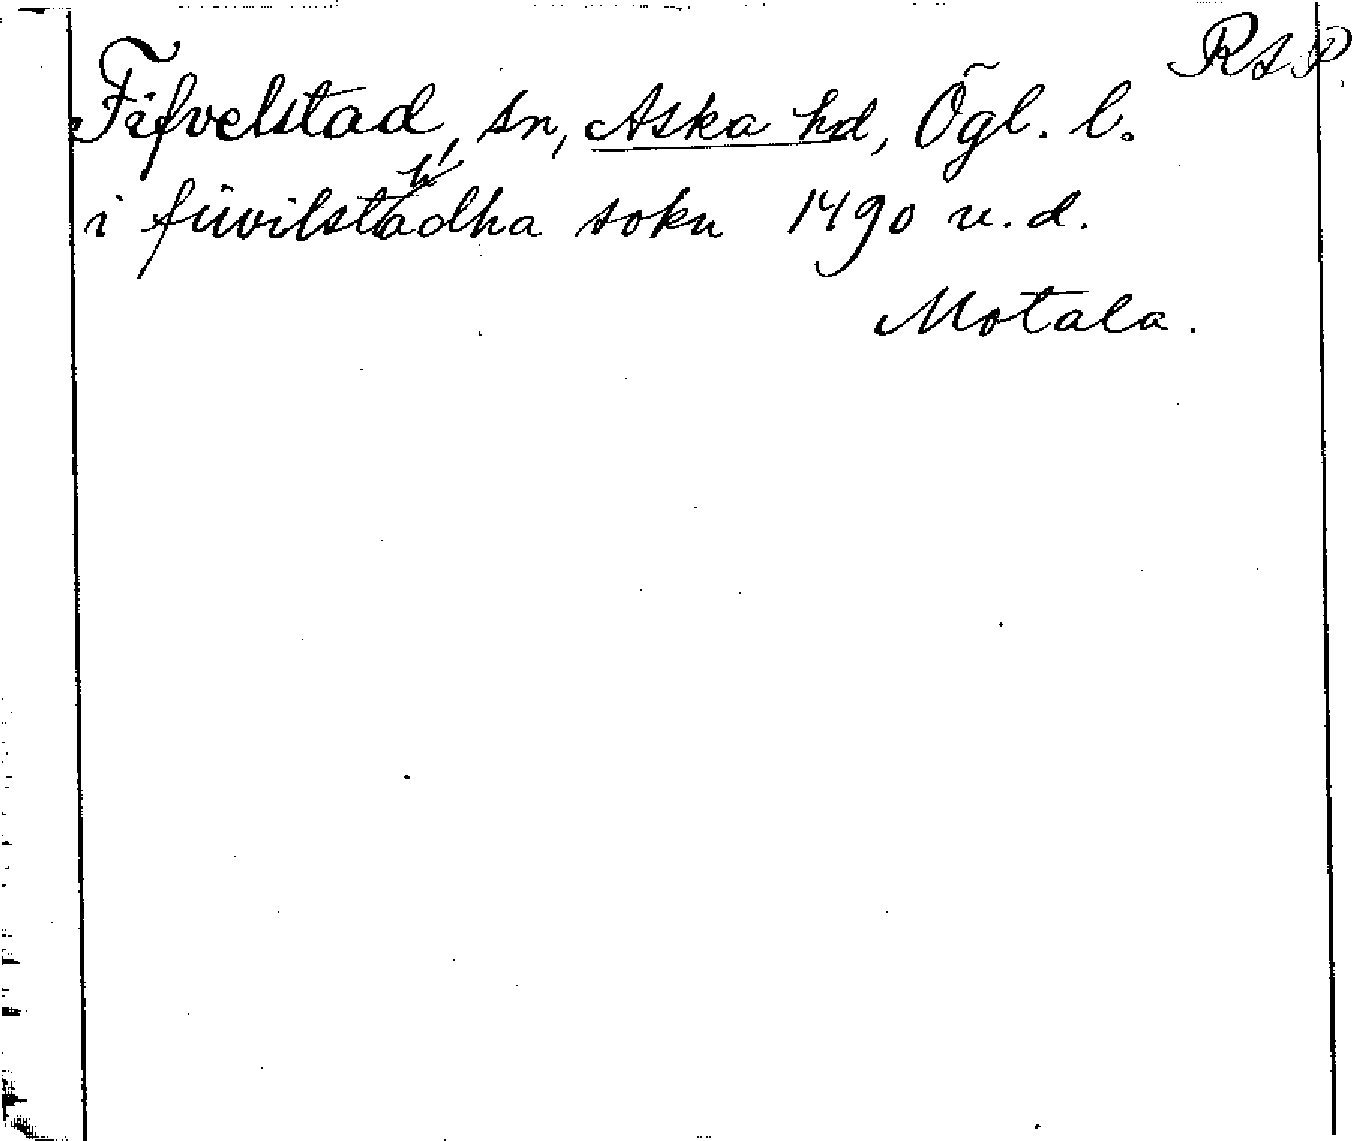 RAP
Fifvelstad, sn, Aska hd, Ögl. l.
i fiivilstadha sokn 1490 u. d.
Motala.